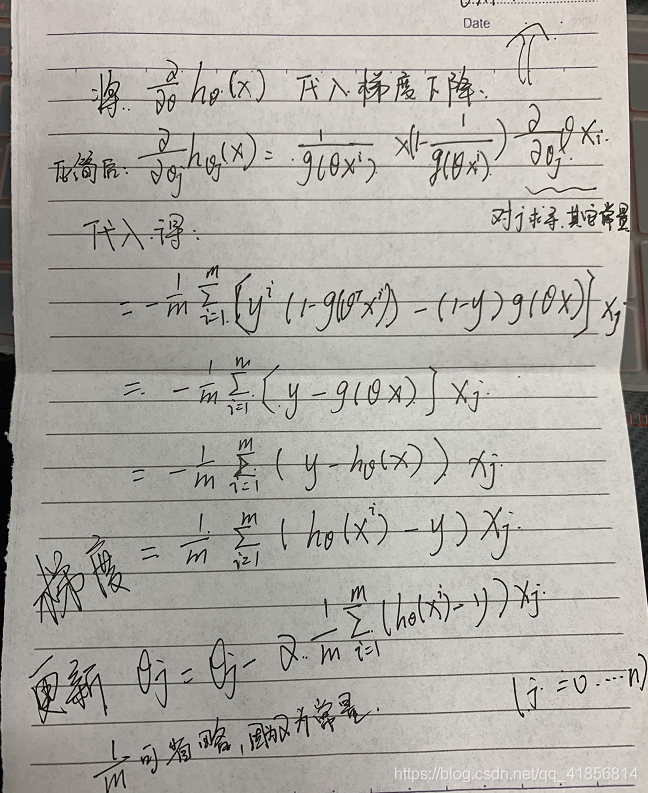 Date
将 ∂/∂θ hθ(x) 代入梯度下降:
化简后: ∂/∂θj hθj(x) = 1/g(θxⁱ) ×(1-1/g(θxⁱ)) ∂/∂θj θxi
对j求导,其它常量
代入得:
= -1/m Σᵐᵢ₌₁ [yⁱ(1-g(θᵀxⁱ)) - (1-y)g(θx)] xj
= -1/m Σᵐᵢ₌₁ [y-g(θx)] xj
= -1/m Σᵐᵢ₌₁ (y-hθ(x)) xj
梯度 = 1/m Σᵐᵢ₌₁ (hθ(xⁱ)-y) xj
更新 θj = θj - α 1/m Σᵐᵢ₌₁ (hθ(xⁱ)-y) xj
(j=0····n)
1/m 可省略,因为α为常量.
https://blog.csdn.net/qq_41856814